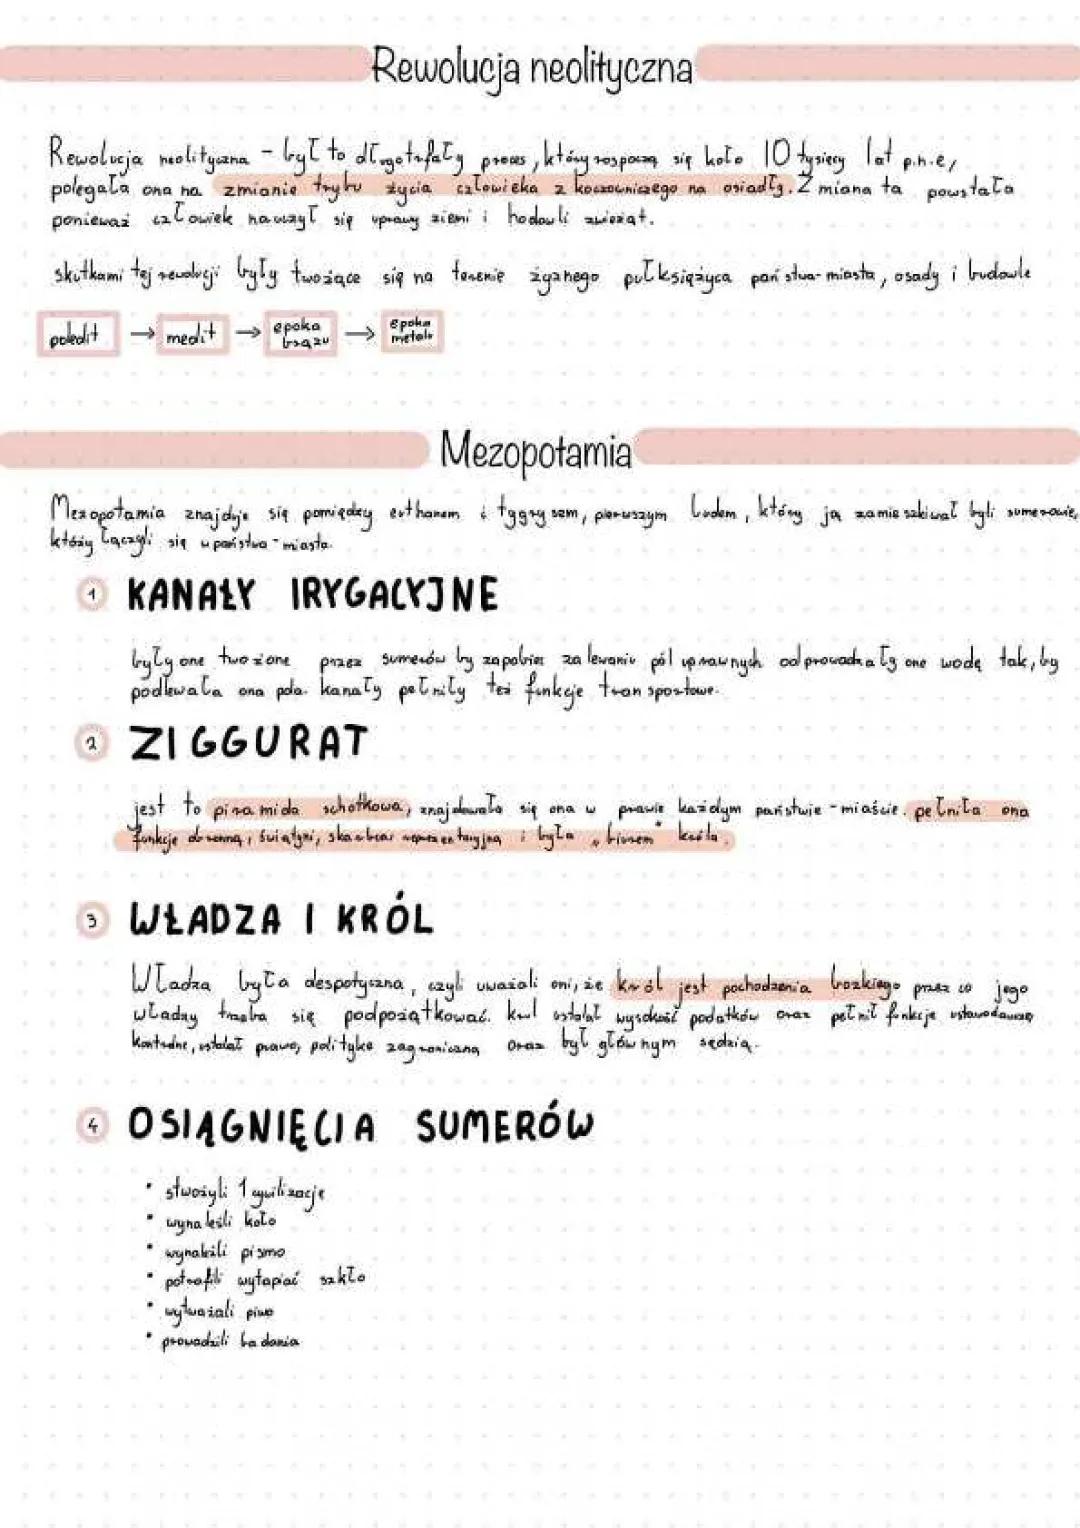 Rewolucja neolityczna
Rewolucja neolityczna - był to długotrfały proces, który rospoczą się koło 10 tysięcy lat p.n.e,
polegała ona na zmianie trybu życia człowieka z koczowniczego na osiadły. Zmiana ta powstała
ponieważ człowiek nauczył się uprawy ziemi i hodowli zwieżąt.
skutkami tej rewolucji były twożące się na terenie żyznego pułksiężyca państwa-miasta, osady i budowle
poledit → medit → epoka brązu → epoka metali
Mezopotamia
Mezopotamia znajduje się pomiędzy i tygrysem, pierwszym ludem, który ją zamieszkiwał byli sumerowie,
któży łączyli się w państwa-miasta.
1 KANAŁY IRYGACYJNE
były one twożone przez sumerów by zapobiec zalewaniu pól uprawnych odprowadzały one wodę tak, by
podlewała ona pola. kanały pełniły też funkcje transportowe.
2 ZIGGURAT
jest to piramida schotkowa, znajdowała się ona w prawie każdym państwie-mieście. pełniła ona
funkcje obronną, świątyni, skarbca reprezentacyjną i była „biurem" króla.
3 WŁADZA I KRÓL
Władza była despotyczna, czyli uważali oni, że król jest pochodzenia bozkiego przez co jego
władzy trzeba się podpożątkować. krul ustalał wysokość podatków oraz pełnił funkcje ustawodawczą
ustalał prawo, polityke zagraniczną oraz był głównym sędzią.
4 OSIĄGNIĘCIA SUMERÓW
• stwożyli 1 cywilizacje
• wynaleśli koło
• wynaleźli pismo
• potrafili wytapiać szkło
• wytważali piwo
• prowadzili badania